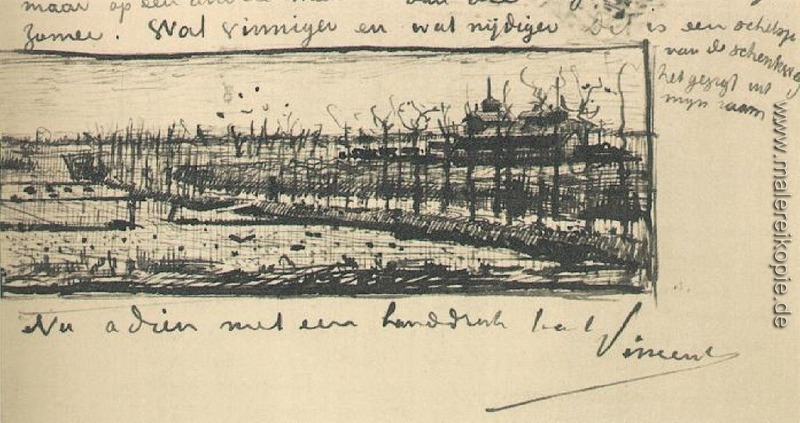 maar op een
zomer. Wat vinniger en wat nijdiger Dit is een schetsje
van de schenkweg
het gezigt uit
mijn raam
Nu adieu met een handdruk
Vincent
www.malereikopie.de